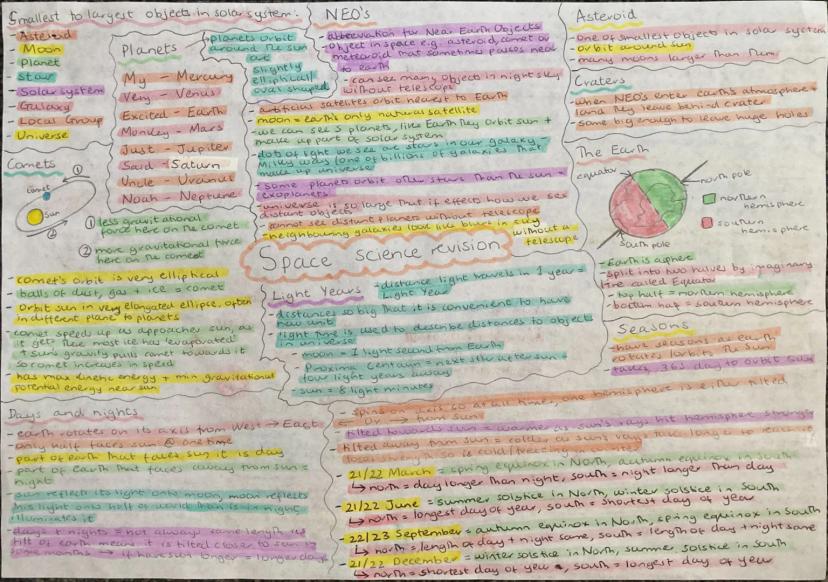 Smallest to largest objects in solar system:
- Asteroid
- Moon
- Planet
- Star
- Solar system
- Galaxy
- Local Group
- Universe
Planets
My - Mercury
Very - Venus
Excited - Earth
Monkey - Mars
Just - Jupiter
Said - Saturn
Uncle - Uranus
Noah - Neptune
planets orbit
around the sun
slightly
elliptical/
oval shaped
Comets
①
comet
Sun
②
① less gravitational
force here on the comet
② more gravitational force
here on the comet
- comet's orbit is very elliptical
- balls of dust, gas + ice = comet
- orbit sun in very elongated ellipse, often
in different plane to planets
- comet speeds up as approaches sun, as
it gets there most ice has evaporated
+ sun's gravity pulls comet towards it
so comet increases in speed
- has max kinetic energy + min gravitational
potential energy near sun
NEO's
- abbreviation for Near Earth Objects
- object in space e.g. asteroid, comet or
meteoroid that sometimes passes near
to earth
- can see many objects in night sky
without telescope
- artificial satelites orbit nearest to Earth
- moon = earth's only natural satellite
- we can see 5 planets, like Earth they orbit sun +
make up part of solar system
- dots of light we see are stars in our galaxy -
Milky Way (one of billions of galaxies that
make up universe
- some planets orbit other stars than the sun =
exoplanets
- universe is so large that it effects how we see
distant objects
- cannot see distant planets without telescope
- neighbouring galaxies look like blurs in sky
without a
telescope
Space science revision
Light Years
- distance light travels in 1 year =
Light Year
- distances so big that it is convenient to have
new unit
- light time is used to describe distances to objects
in universe
- moon = 1 light second from Earth
- Proxima Centauri = next star after sun =
four light years away
- sun = 8 light minutes
Asteroid
- one of smallest objects in solar system
- orbit around sun
- many moons larger than them
Craters
- when NEO's enter earth's atmosphere +
land they leave behind crater
- some big enough to leave huge holes
The Earth
equator
north pole
northern
hemisphere
southern
hemisphere
south pole
- Earth is a sphere
- split into two halves by imaginary
line called Equator
- top half = northern hemisphere
- bottom half = southern hemisphere
Seasons
- have seasons as earth
rotates/orbits the sun
- takes 365 days to orbit sun
- spins on axis so at all times, one hemisphere is either tilted
to or from sun
- tilted towards sun = warmer as sun's rays hit hemisphere
- tilted away from sun = colder as sun's rays take longer to reach
- 21/22 March = spring equinox in North, autumn equinox in South
↳ north = day longer than night, south = night longer than day
- 21/22 June = summer solstice in North, winter solstice in South
↳ north = longest day of year, south = shortest day of year
- 22/23 September = autumn equinox in North, spring equinox in South
↳ north = length of day + night same, south = length of day + night same
- 21/22 December = winter solstice in North, summer solstice in South
↳ north = shortest day of year, south = longest day of year
Days and nights
- earth rotates on its axis from West → East
- only half faces sun @ one time
- part of earth that faces sun it is day
- part of earth that faces away from sun =
night
- sun reflect its light onto moon, moon reflects
this light onto half of world that is in night,
illuminates it
- days + nights = not always same length as
tilt of earth means it is tilted closer to sun in
some months → if have sun longer = longer days